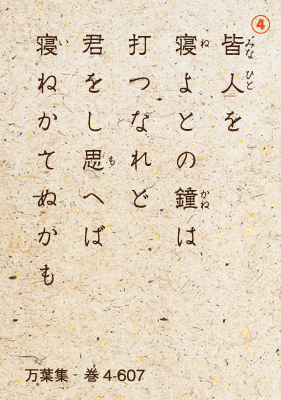 ④
皆人を
寝よとの鐘は
打つなれど
君をし思へば
寝ねかてぬかも
みなひと
ね
かね
も
い
万葉集・巻4-607